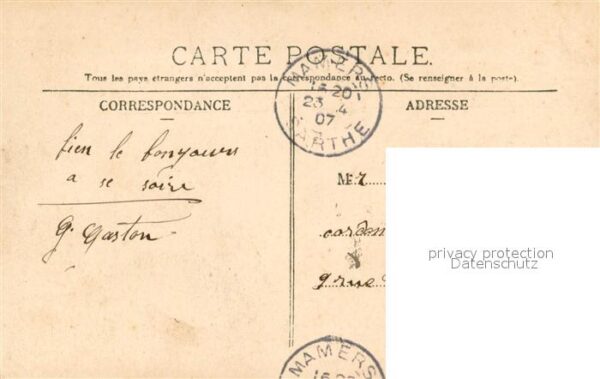 CARTE POSTALE.
Tous les pays étrangers n'acceptent pas la correspondance au recto. (Se renseigner à la poste).
CORRESPONDANCE
ADRESSE
MAMERS
15 20
23 4
07
SARTHE
bien le bonjour
a se soire
G. Gaston
M r
cordon
9 rue
privacy protection
Datenschutz
MAMERS